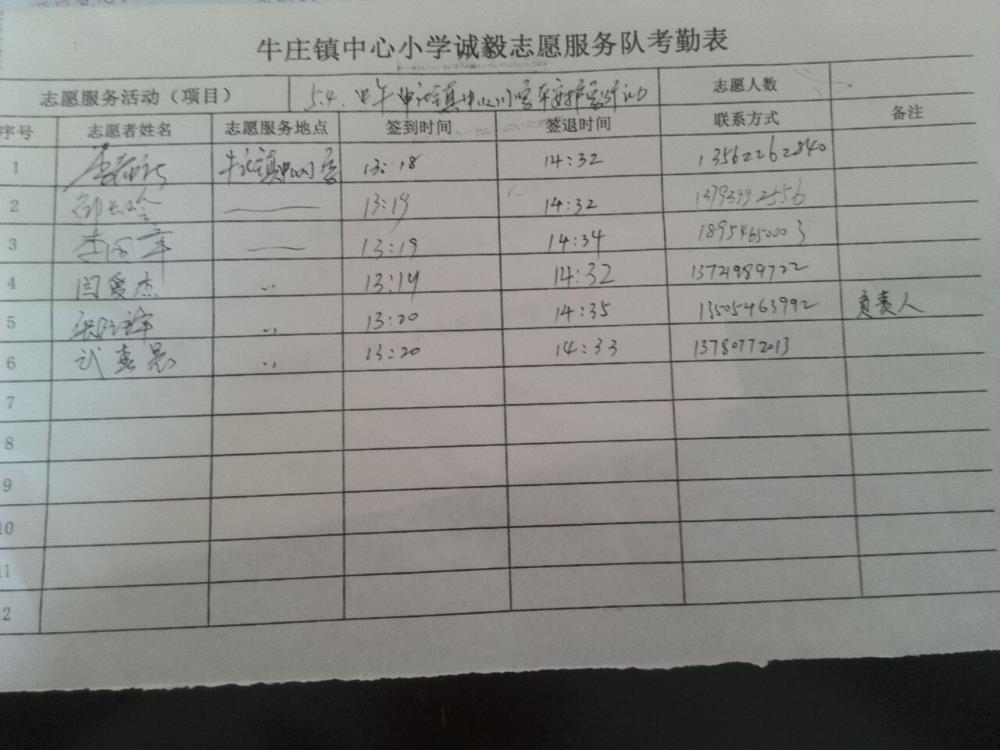 牛庄镇中心小学诚毅志愿服务队考勤表
志愿服务活动（项目） 5.4. 志愿人数
序号 志愿者姓名 志愿服务地点 签到时间 签退时间 联系方式 备注
1 牛庄镇中心小学 13:18 14:32 13562262840
2 13:19 14:32 13793992556
3 13:19 14:34 18954650003
4 闫爱杰 〃 13:19 14:32 13721989722
5 〃 13:20 14:35 13505463992 负责人
6 武惠 〃 13:20 14:33 13780772013
7
8
9
10
11
12